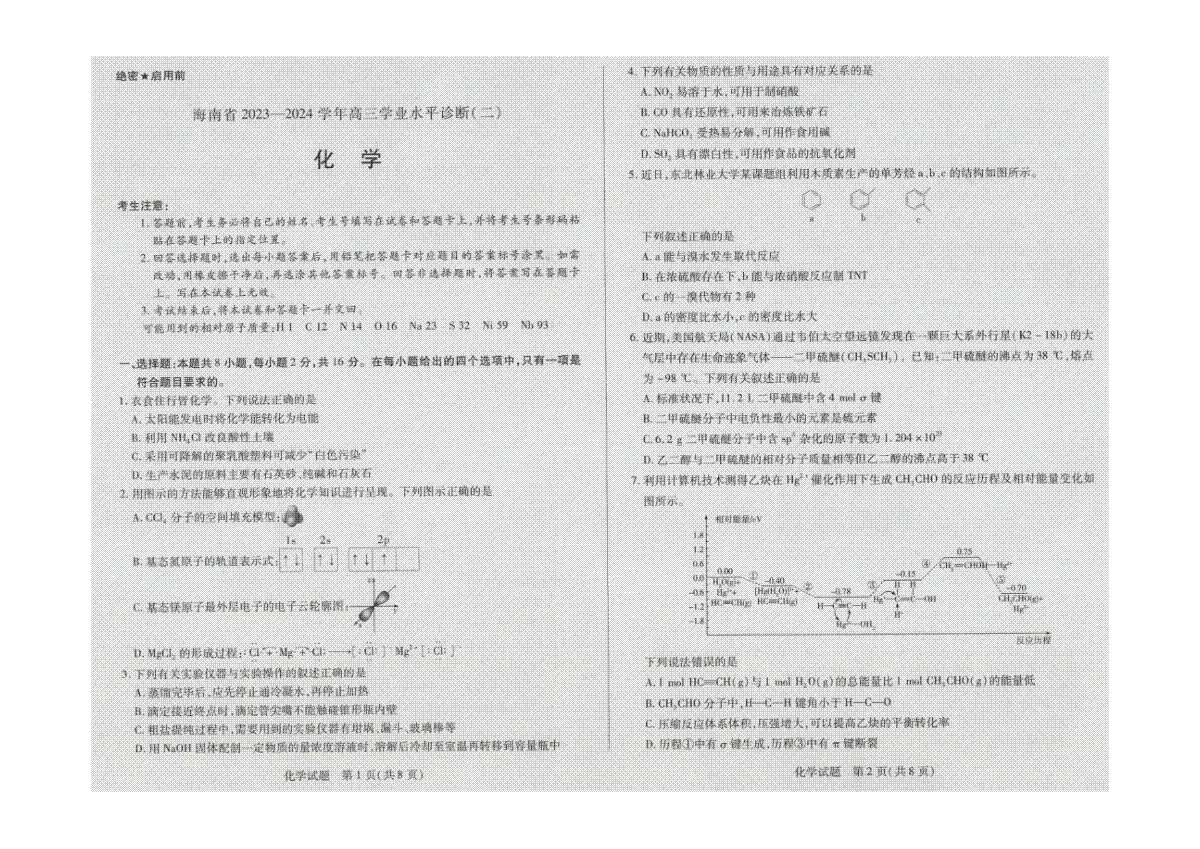 绝密★启用前
海南省 2023—2024 学年高三学业水平诊断(二)
化 学
考生注意:
1. 答题前,考生务必将自己的姓名、考生号填写在试卷和答题卡上,并将考生号条形码粘
贴在答题卡上的指定位置。
2. 回答选择题时,选出每小题答案后,用铅笔把答题卡对应题目的答案标号涂黑。如需
改动,用橡皮擦干净后,再选涂其他答案标号。回答非选择题时,将答案写在答题卡
上。写在本试卷上无效。
3. 考试结束后,将本试卷和答题卡一并交回。
可能用到的相对原子质量:H 1 C 12 N 14 O 16 Na 23 S 32 Ni 59 Nb 93
一、选择题:本题共 8 小题,每小题 2 分,共 16 分。在每小题给出的四个选项中,只有一项是
符合题目要求的。
1. 衣食住行皆化学。下列说法正确的是
A. 太阳能发电时将化学能转化为电能
B. 利用 NH₄Cl 改良酸性土壤
C. 采用可降解的聚乳酸塑料可减少“白色污染”
D. 生产水泥的原料主要有石英砂、纯碱和石灰石
2. 用图示的方法能够直观形象地将化学知识进行呈现。下列图示正确的是
A. CCl₄ 分子的空间填充模型:
1s 2s 2p
B. 基态氮原子的轨道表示式: ↑↓ ↑↓ ↑↓ ↑
C. 基态镁原子最外层电子的电子云轮廓图:
D. MgCl₂ 的形成过程:
3. 下列有关实验仪器与实验操作的叙述正确的是
A. 蒸馏完毕后,应先停止通冷凝水,再停止加热
B. 滴定接近终点时,滴定管尖嘴不能触碰锥形瓶内壁
C. 粗盐提纯过程中,需要用到的实验仪器有坩埚、漏斗、玻璃棒等
D. 用 NaOH 固体配制一定物质的量浓度溶液时,溶解后冷却至室温再转移到容量瓶中
化学试题 第 1 页(共 8 页)
4. 下列有关物质的性质与用途具有对应关系的是
A. NO₂ 易溶于水,可用于制硝酸
B. CO 具有还原性,可用来冶炼铁矿石
C. NaHCO₃ 受热易分解,可用作食用碱
D. SO₂ 具有漂白性,可用作食品的抗氧化剂
5. 近日,东北林业大学某课题组利用木质素生产的单芳烃 a、b、c 的结构如图所示。
a b c
下列叙述正确的是
A. a 能与溴水发生取代反应
B. 在浓硫酸存在下,b 能与浓硝酸反应制 TNT
C. c 的一溴代物有 2 种
D. a 的密度比水小,c 的密度比水大
6. 近期,美国航天局(NASA)通过韦伯太空望远镜发现在一颗巨大系外行星(K2-18b)的大
气层中存在生命迹象气体——二甲硫醚(CH₃SCH₃)。已知:二甲硫醚的沸点为 38 ℃,熔点
为 -98 ℃。下列有关叙述正确的是
A. 标准状况下,11.2 L 二甲硫醚中含 4 mol σ 键
B. 二甲硫醚分子中电负性最小的元素是硫元素
C. 6.2 g 二甲硫醚分子中含 sp³ 杂化的原子数为 1.204×10²³
D. 乙二醇与二甲硫醚的相对分子质量相等但乙二醇的沸点高于 38 ℃
7. 利用计算机技术测得乙炔在 Hg²⁺ 催化作用下生成 CH₃CHO 的反应历程及相对能量变化如
图所示。
相对能量/eV
1.8
1.2
0.6
0.0
-0.6
-1.2
-1.8
0.00 ① -0.40 ② -0.78 ③ -0.15 ④ 0.75 ⑤ -0.70
H₂O(g)+
Hg²⁺+
HC≡CH(g)
[Hg(H₂O)]²⁺+
HC≡CH(g)
CH₃CHO(g)+
Hg²⁺
反应历程
下列说法错误的是
A. 1 mol HC≡CH(g)与 1 mol H₂O(g)的总能量比 1 mol CH₃CHO(g)的能量低
B. CH₃CHO 分子中,H—C—H 键角小于 H—C—O
C. 压缩反应体系体积,压强增大,可以提高乙炔的平衡转化率
D. 历程①中有 σ 键生成,历程③中有 π 键断裂
化学试题 第 2 页(共 8 页)